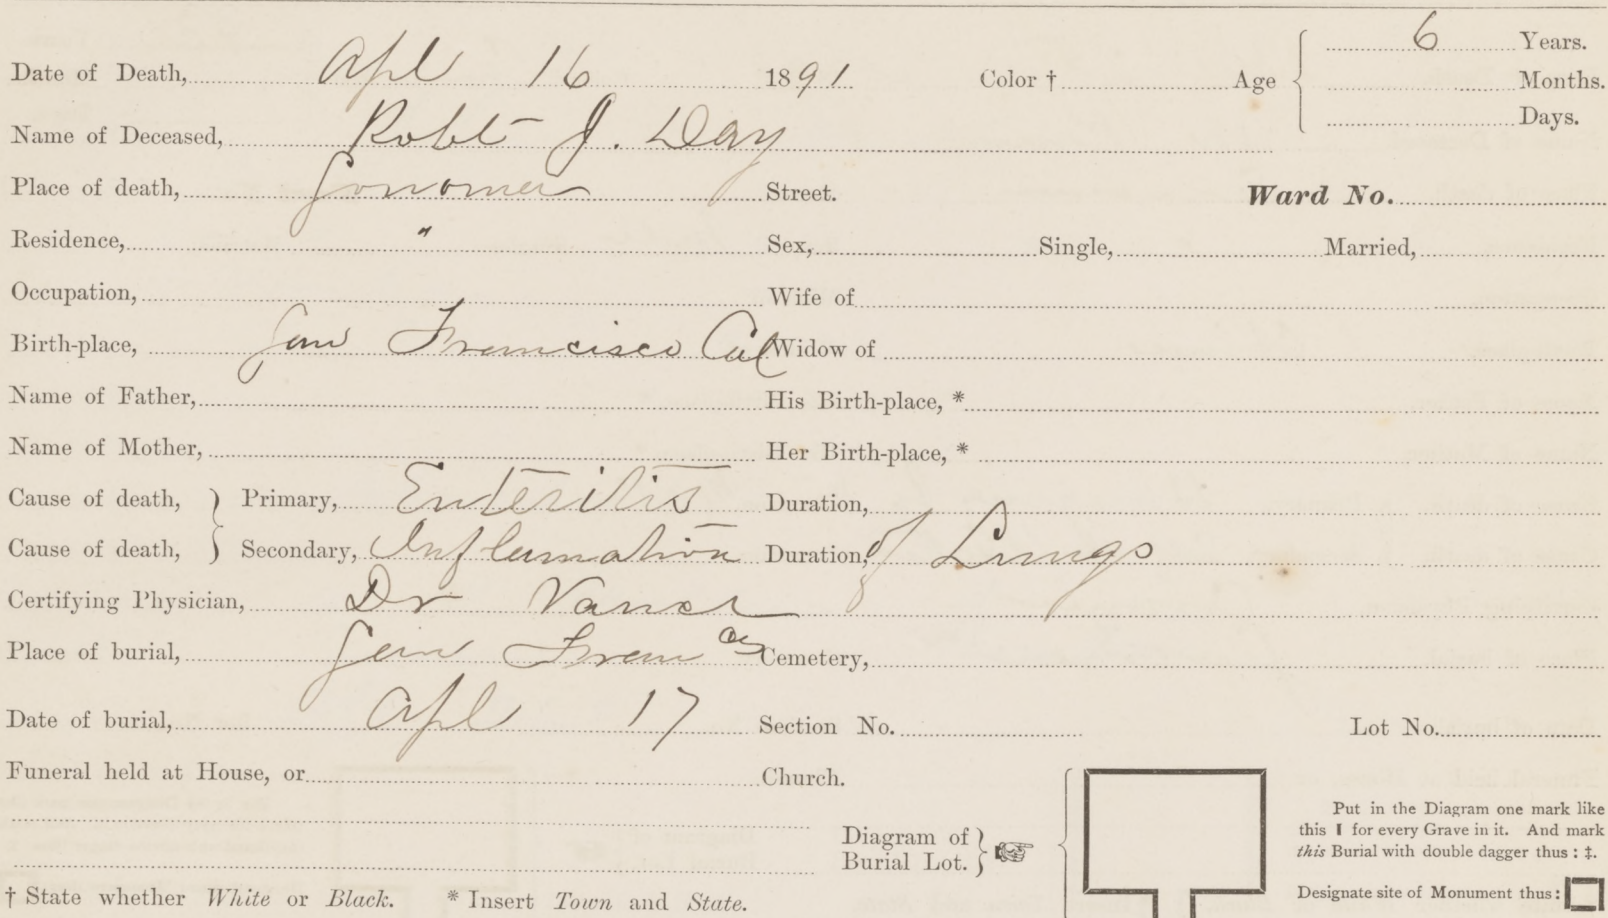 6 Years.
Date of Death, Apl 16 1891 Color † Age { Months.
Days.
Name of Deceased, Robt J. Day
Place of death, Sonoma Street. Ward No.
Residence, " Sex, Single, Married,
Occupation, Wife of
Birth-place, San Francisco Cal Widow of
Name of Father, His Birth-place, *
Name of Mother, Her Birth-place, *
Cause of death, } Primary, Enteritis Duration,
Cause of death, } Secondary, Inflamation Duration, of Lungs
Certifying Physician, Dr
Place of burial, San Fran Cemetery,
Date of burial, Apl 17 Section No. Lot No.
Funeral held at House, or Church.
Diagram of
Burial Lot. } ☞
Put in the Diagram one mark like
this I for every Grave in it. And mark
this Burial with double dagger thus : ‡.
Designate site of Monument thus :
† State whether White or Black. * Insert Town and State.